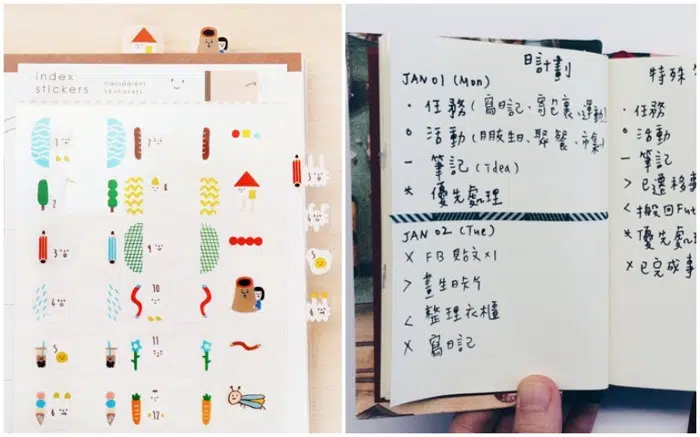 index
stickers
transparent
12 stickers
8
2
3
9
10
4
5
11
6
12
日計劃
JAN 01 (Mon)
· 任務 (寫日記、寄包裹、運動)
o 活動 (生日、聚餐、市集)
— 筆記 (idea)
* 優先處理
JAN 02 (Tue)
X FB 貼文x1
> 畫生日卡片
< 整理衣櫃
X 寫日記
特殊
· 任務
o 活動
— 筆記
> 已遷移事
< 搬回Fut
* 優先處理
X 已完成事